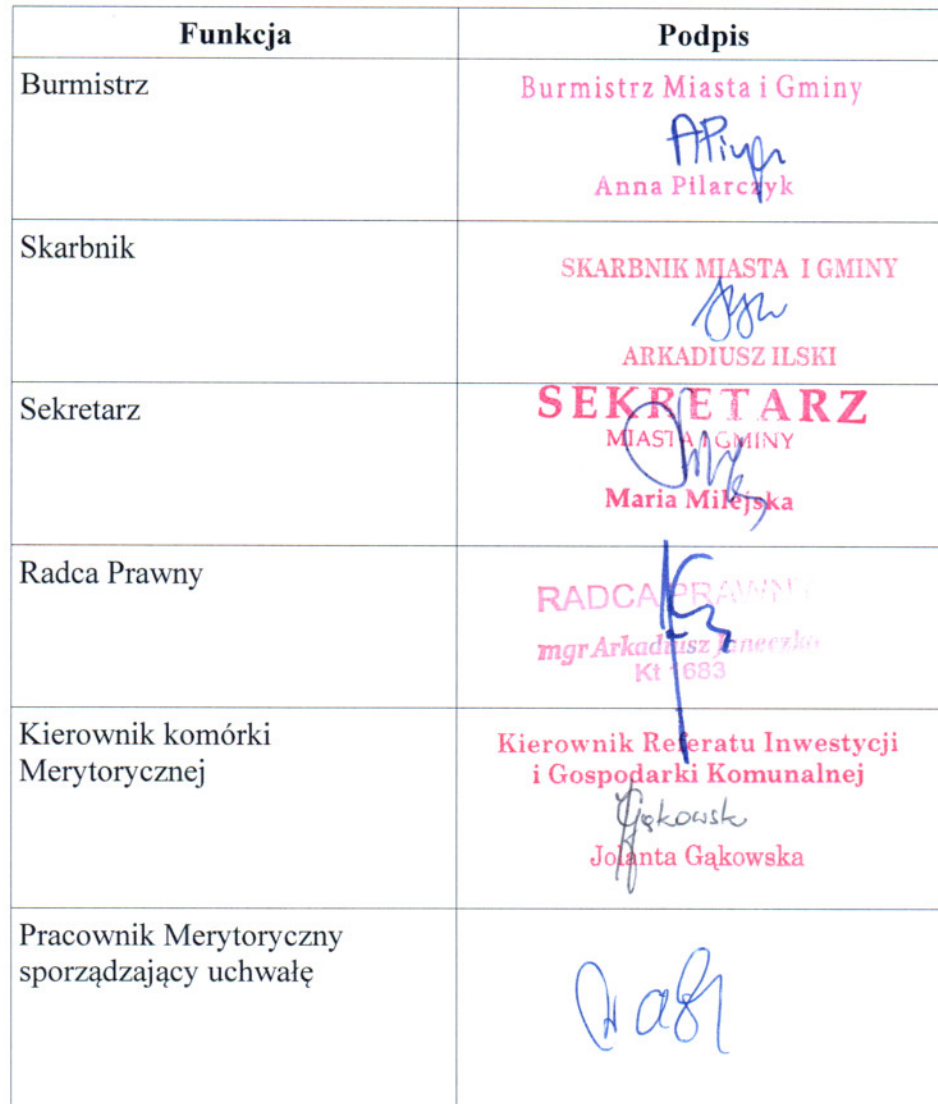 Funkcja Podpis
Burmistrz
Burmistrz Miasta i Gminy
Anna Pilarczyk
Skarbnik
SKARBNIK MIASTA I GMINY
ARKADIUSZ ILSKI
Sekretarz
SEKRETARZ
MIASTA I GMINY
Maria Milejska
Radca Prawny
RADCA PRAWNY
mgr Arkadiusz Janeczko
Kt 1683
Kierownik komórki
Merytorycznej
Kierownik Referatu Inwestycji
i Gospodarki Komunalnej
Jolanta Gąkowska
Pracownik Merytoryczny
sporządzający uchwałę